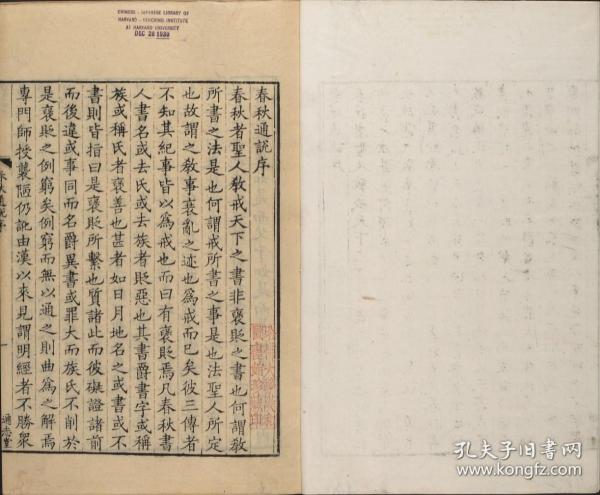 CHINESE - JAPANESE LIBRARY OF
HARVARD - YENCHING INSTITUTE
AT HARVARD UNIVERSITY
DEC 28 1930
春秋通說序
春秋者聖人教戒天下之書非褒貶之書也何謂教
所書之法是也何謂戒所書之事是也法聖人所定
也故謂之教事衰亂之迹也為戒而已矣彼三傳者
不知其紀事皆以為戒也而曰有褒貶焉凡春秋書
人書名或去氏或去族者貶惡也其書爵書字或稱
族或稱氏者褒善也甚者如日月地名之或書或不
書則皆指曰是褒貶所繫也質諸此而彼礙證諸前
而後違或事同而名爵異書或罪大而族氏不削於
是褒貶之例窮矣例窮而無以通之則曲為之解焉
專門師授襲陋仍訛由漢以來見謂明經者不勝眾
春秋通說序
一
通志堂
孔夫子旧书网
kongfz.com